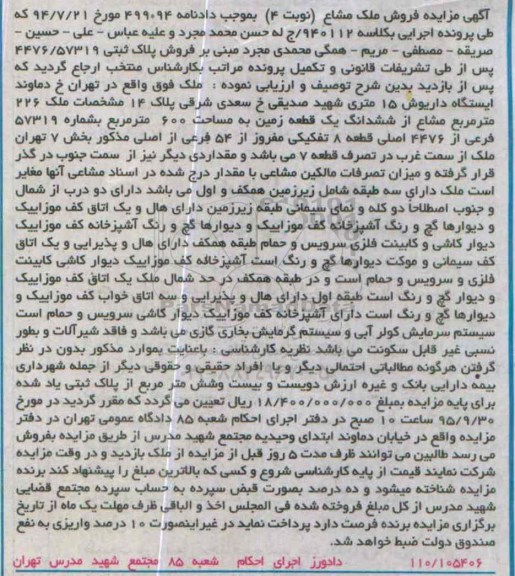 آگهی مزایده فروش ملک مشاع (نوبت ۴) بموجب دادنامه ۴۹۹۰۹۴ مورخ ۹۴/۷/۲۱ که
طی پرونده اجرایی بکلاسه ۹۴۰۱۱۲/ج له حسن محمد مجرد و علیه عباسی - علی - حسین -
صریقه - مصطفی - مریم - همگی محمدی مجرد مبنی بر فروش پلاک ثبتی ۴۴۷۶/۵۷۳۱۹
پس از طی تشریفات قانونی و تکمیل پرونده مراتب بکارشناس منتخب ارجاع گردید که
پس از بازدید بدین شرح توصیف و ارزیابی نموده : ملک فوق واقع در تهران خ دماوند
ایستگاه داریوش ۱۵ متری شهید صدیقی خ سعدی شرقی پلاک ۱۴ مشخصات ملک ۲۲۶
مترمربع مشاع از ششدانگ یک قطعه زمین به مساحت ۶۰۰ مترمربع بشماره ۵۷۳۱۹
فرعی از ۴۴۷۶ اصلی قطعه ۸ تفکیکی مفروز از ۵۴ فرعی از اصلی مذکور بخش ۷ تهران
ملک از سمت غرب در تصرف قطعه ۷ می باشد و مقداردی دیگر نیز از سمت جنوب در گذر
قرار گرفته و میزان تصرفات مالکین مشاعی با مقدار درج شده در اسناد مشاعی آنها مغایر
است ملک دارای سه طبقه شامل زیرزمین همکف و اول می باشد دارای دو درب از شمال
و جنوب اصطلاحاً دو کله و نمای سیمانی طبقه زیرزمین دارای هال و یک اتاق کف موزاییک
و دیوارها گچ و رنگ آشپزخانه کف موزاییک و دیوارها گچ و رنگ آشپزخانه کف موزاییک
دیوار کاشی و کابینت فلزی سرویس و حمام طبقه همکف دارای هال و پذیرایی و یک اتاق
کف سیمانی و موکت دیوارها گچ و رنگ است آشپزخانه کف موزاییک دیوار کاشی کابینت
فلزی و سرویس و حمام است و در طبقه همکف در حد شمال ملک یک اتاق کف موزاییک
و دیوار گچ و رنگ است طبقه اول دارای هال و پذیرایی و سه اتاق خواب کف موزاییک و
دیوارها گچ و رنگ است دارای آشپزخانه کف موزاییک دیوار کاشی سرویس و حمام است
سیستم سرمایش کولر آبی و سیستم گرمایش بخاری گازی می باشد و فاقد شیرآلات و بطور
نسبی غیر قابل سکونت می باشد نظریه کارشناسی : باعنایت بموارد مذکور بدون در نظر
گرفتن هرگونه مطالباتی احتمالی دیگر و یا افراد حقیقی و حقوقی دیگر از جمله شهرداری
بیمه دارایی بانک و غیره ارزش دویست و بیست وشش متر مربع از پلاک ثبتی یاد شده
برای پایه مزایده بمبلغ ۱۸/۴۰۰/۰۰۰/۰۰۰ ریال تعیین می گردد که مقرر گردید در مورخ
۹۵/۹/۳۰ ساعت ۱۰ صبح در دفتر اجرای احکام شعبه ۸۵ دادگاه عمومی تهران در دفتر
مزایده واقع در خیابان دماوند ابتدای وحیدیه مجتمع شهید مدرس از طریق مزایده بفروش
می رسد طالبین می توانند ظرف مدت ۵ روز قبل از مزایده از ملک بازدید و در وقت مزایده
شرکت نمایند قیمت از پایه کارشناسی شروع و کسی که بالاترین مبلغ را پیشنهاد کند برنده
مزایده شناخته میشود و ده درصد بصورت قبض سپرده به حساب سپرده مجتمع قضایی
شهید مدرس از کل مبلغ فروخته شده فی المجلس اخذ و الباقی ظرف مهلت یک ماه از تاریخ
برگزاری مزایده برنده فرصت دارد پرداخت نماید در غیراینصورت ۱۰ درصد واریزی به نفع
صندوق دولت ضبط خواهد شد.
۱۱۰/۱۰۵۴۰۶ دادورز اجرای احکام شعبه ۸۵ مجتمع شهید مدرس تهران